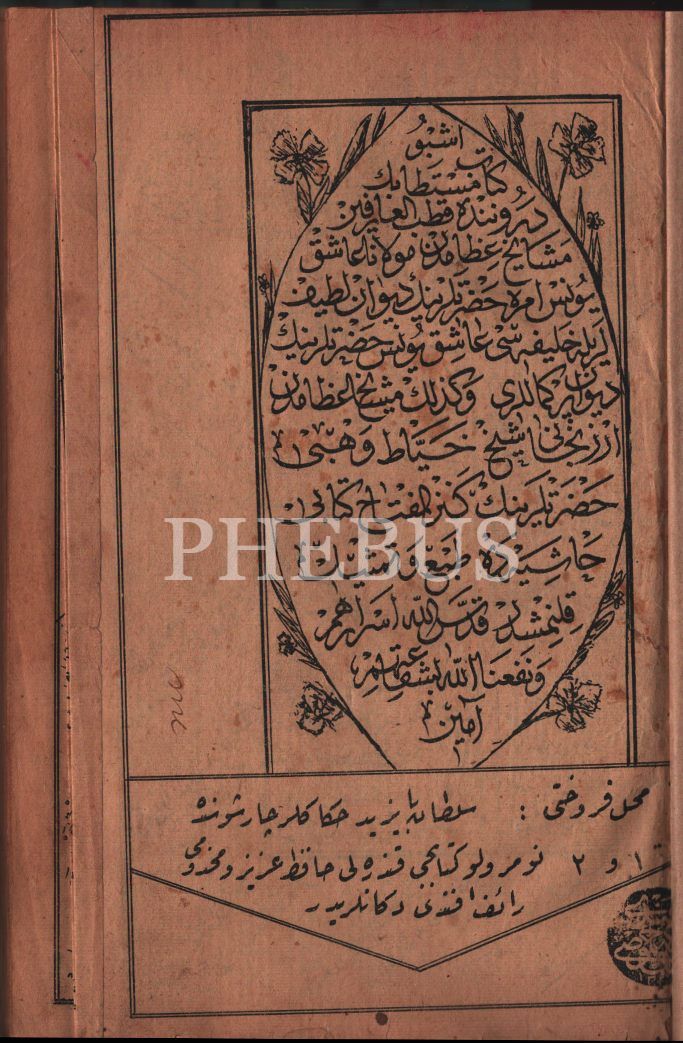 اشبو
كتاب مستطابك
درونده قطب العارفين
مشايخ عظامدن مولانا عاشق
يونس امره حضرتلرينك ديوان لطيف
لريله خليفه سى عاشق يونس حضرتلرينك
ديوان لركمالرى وكذلك مشايخ عظامدن
ارزنجانى شيخ خياط وهبى
حضرتلرينك كنز المفتاح كتابى
حاشيه ده طبع وتمثيل
قلنمشدر قدس الله اسرارهم
ونفعنا الله بشفاعتهم
آمين
PHEBUS
محل فروختى : سلطان بايزيد حكاكلر چارشوسنده
١ و ٢ نومرولو كتابجى قندى لى حافظ عزيز ومخدومى
رائف افندى دكانلريدر